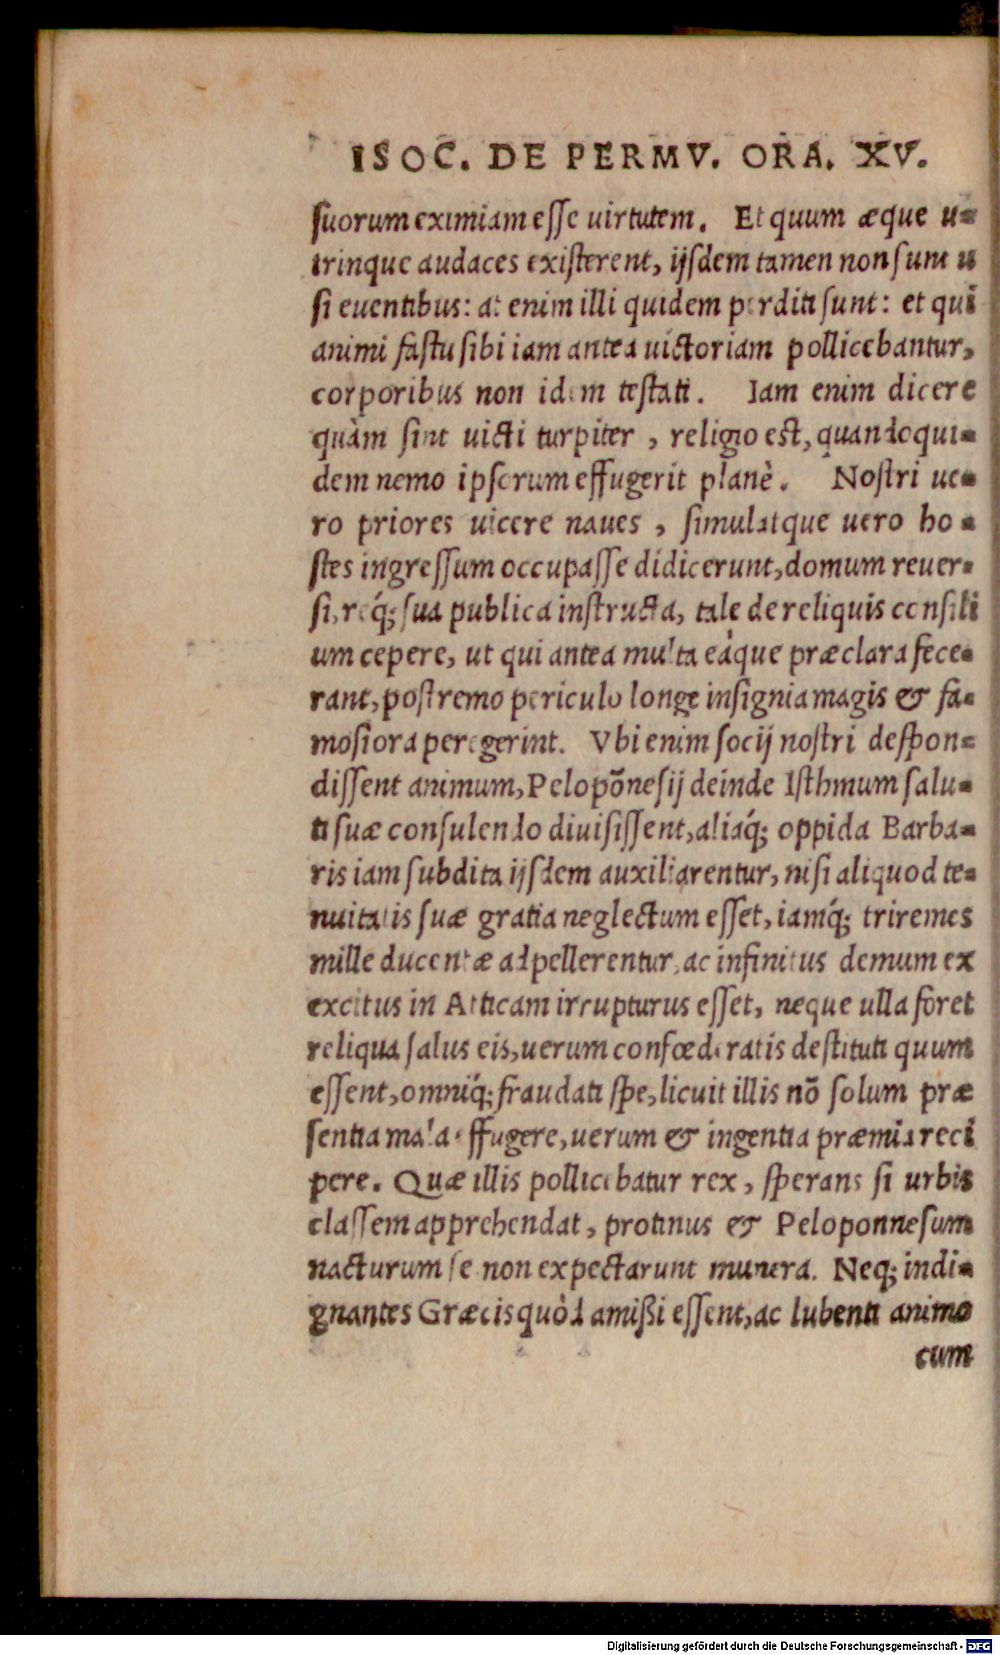 ISOC. DE PERMV. ORA. XV.
suorum eximiam esse uirtutem. Et quum æque u-
trinque audaces existerent, ijsdem tamen non sunt u
si euentibus: at enim illi quidem perditi sunt: et qui
animi fastu sibi iam antea uictoriam pollicebantur,
corporibus non idem testati. Iam enim dicere
quàm sint uicti turpiter, religio est, quandoqui-
dem nemo ipsorum effugerit planè. Nostri ue-
ro priores uicere naues, simulatque uero ho-
stes ingressum occupasse didicerunt, domum reuer-
si, req́; sua publica instructa, tale de reliquis consili
um cepere, ut qui antea multa eáque præclara fece-
rant, postremo periculo longe insignia magis & fa-
mosiora peregerint. Vbi enim socij nostri despon-
dissent animum, Pelopõnesij deinde Isthmum salu-
ti suæ consulendo diuisissent, aliaq́; oppida Barba-
ris iam subdita ijsdem auxiliarentur, nisi aliquod te-
nuitatis suæ gratia neglectum esset, iamq́; triremes
mille ducentæ adpellerentur, ac infinitus demum ex
excitus in Atticam irrupturus esset, neque ulla foret
reliqua salus eis, uerum confœderatis destituti quum
essent, omniq́; fraudati spe, licuit illis nõ solum præ
sentia mala effugere, uerum & ingentia præmia reci
pere. Quæ illis pollicebatur rex, sperans si urbis
classem apprehendat, protinus & Peloponnesum
nacturum se non expectarunt munera. Neq; indi-
gnantes Græcis quòd amißi essent, ac lubenti animo
cum
Digitalisierung gefördert durch die Deutsche Forschungsgemeinschaft - DFG